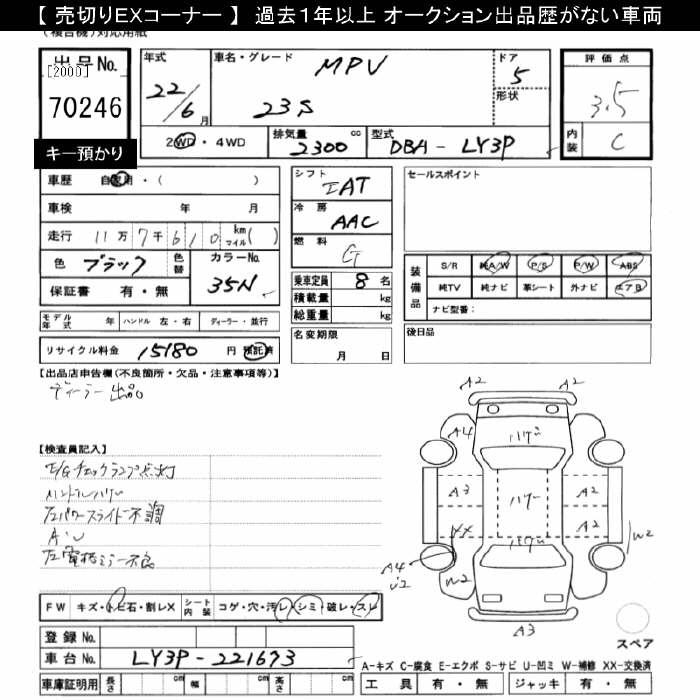 【 売切りEXコーナー 】 過去1年以上 オークション出品歴がない車両
(複合機)対応用紙
出品No.
[2000]
70246
キー預かり
年式
22/6月
車名・グレード
MPV
23S
ドア
5
形状
評価点
3.5
内装
C
2WD・4WD
排気量
2300
cc
型式
DBA-LY3P
車歴
自家用・(　　　)
車検
年　月
走行
11万7千610
kmマイル( )
色
ブラック
色替
カラーNo.
35N
保証書
有・無
モデル年式
年
ハンドル 左・右
ディーラー・並行
リサイクル料金
15180
円
預託済
シフト
IAT
冷房
AAC
燃料
G
乗車定員
8
名
積載量
kg
総重量
kg
名変期限
月　日
セールスポイント
装備品
S/R
純A/W
P/S
P/W
ABS
純TV
純ナビ
革シート
外ナビ
エアB
ナビ型番:
後日品
【出品店申告欄(不良箇所・欠品・注意事項等)】
ディーラー出品
【検査員記入】
E/Gチェックランプ点灯
ハンドルハゲ
左パワースライド不調
左電格ミラー不良
FW
キズ・トビ石・割レX
シート内装
コゲ・穴・汚レ・シミ・破レ・スレ
登録No.
車台No.
LY3P-221673
車庫証明用
長さ
cm
幅
cm
高さ
cm
A2
A2
A4
ハゲ
A2
A3
ハゲ
A2
XX
A2
W2
A4
U2
ハゲ
W2
A3
スペア
A-キズ C-腐食 E-エクボ S-サビ U-凹ミ W-補修 XX-交換済
工具
有・無
ジャッキ
有・無